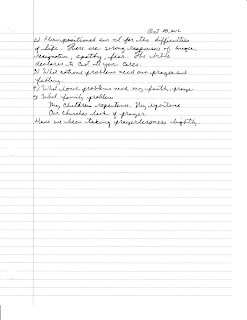 Oct 29, 2012
2) How positioned our for the difficulties
of life. There are wrong responses of anger
resignation, apathy, fear. The bible
declares to Cast all your cares.
3) What national problems need our prayer and
fasting.
4) What local problems need my faith, prayer
5) What family problem
My children's repentance. My repentance
Our churches lack of prayer
Have we been taking prayerlessness lightly.